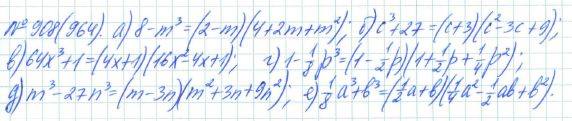 № 908(964). а) 8-m³=(2-m)(4+2m+m²); б) c³+27=(c+3)(c²-3c+9);
в) 64x³+1=(4x+1)(16x²-4x+1); г) 1-⅛p³=(1-½p)(1+½p+¼p²);
д) m³-27n³=(m-3n)(m²+3n+9n²); е) ⅛a³+b³=(½a+b)(¼a²-½ab+b²).